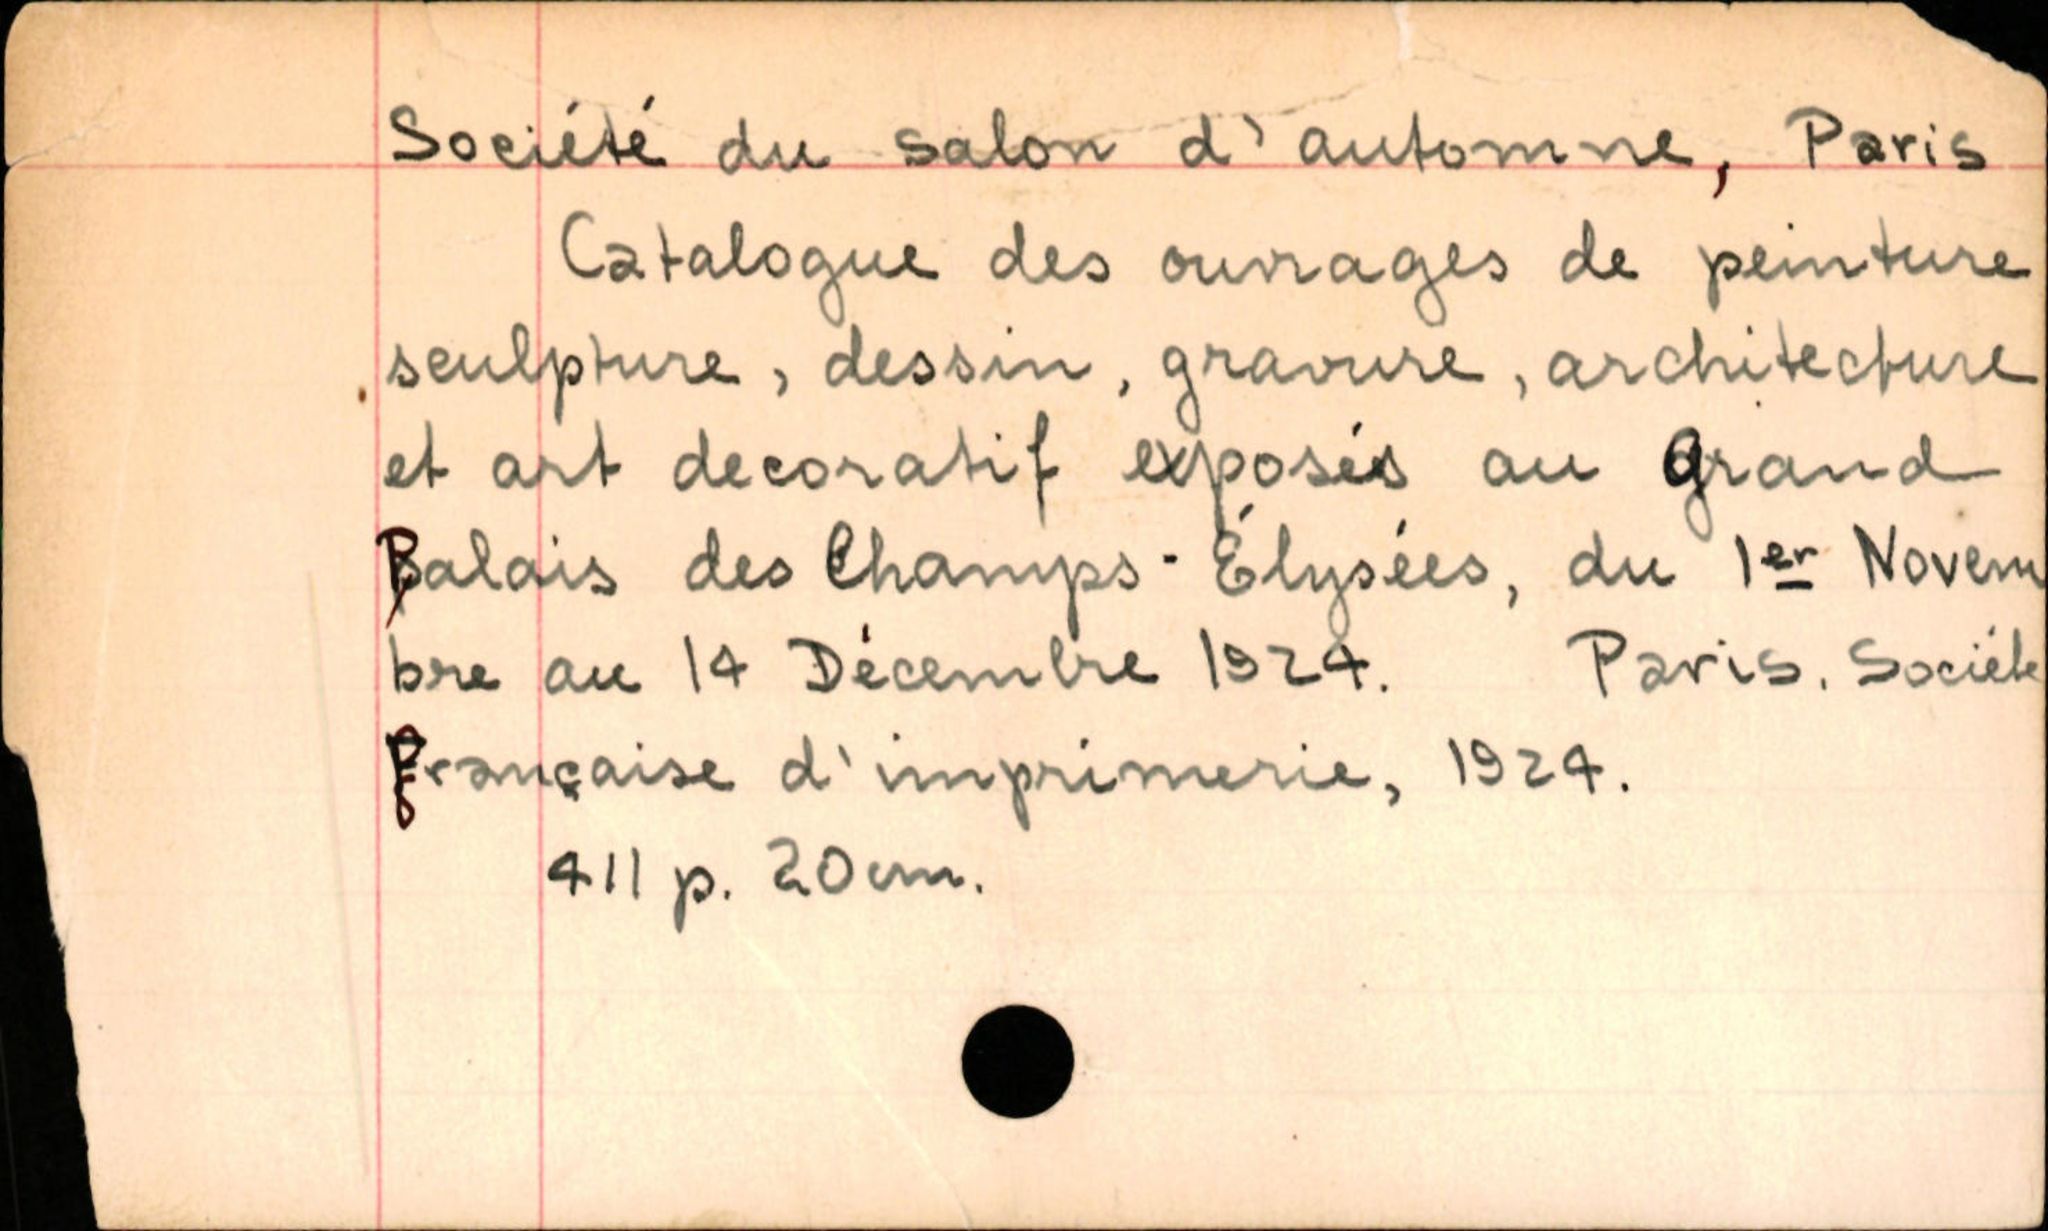 Société du salon d'automne, Paris
Catalogue des ouvrages de peinture
sculpture, dessin, gravure, architecture
et art decoratif exposés au Grand
Palais des Champs-Élysées, du 1er Novem
bre au 14 Décembre 1924. Paris. Société
française d'imprimerie, 1924.
411 p. 20cm.